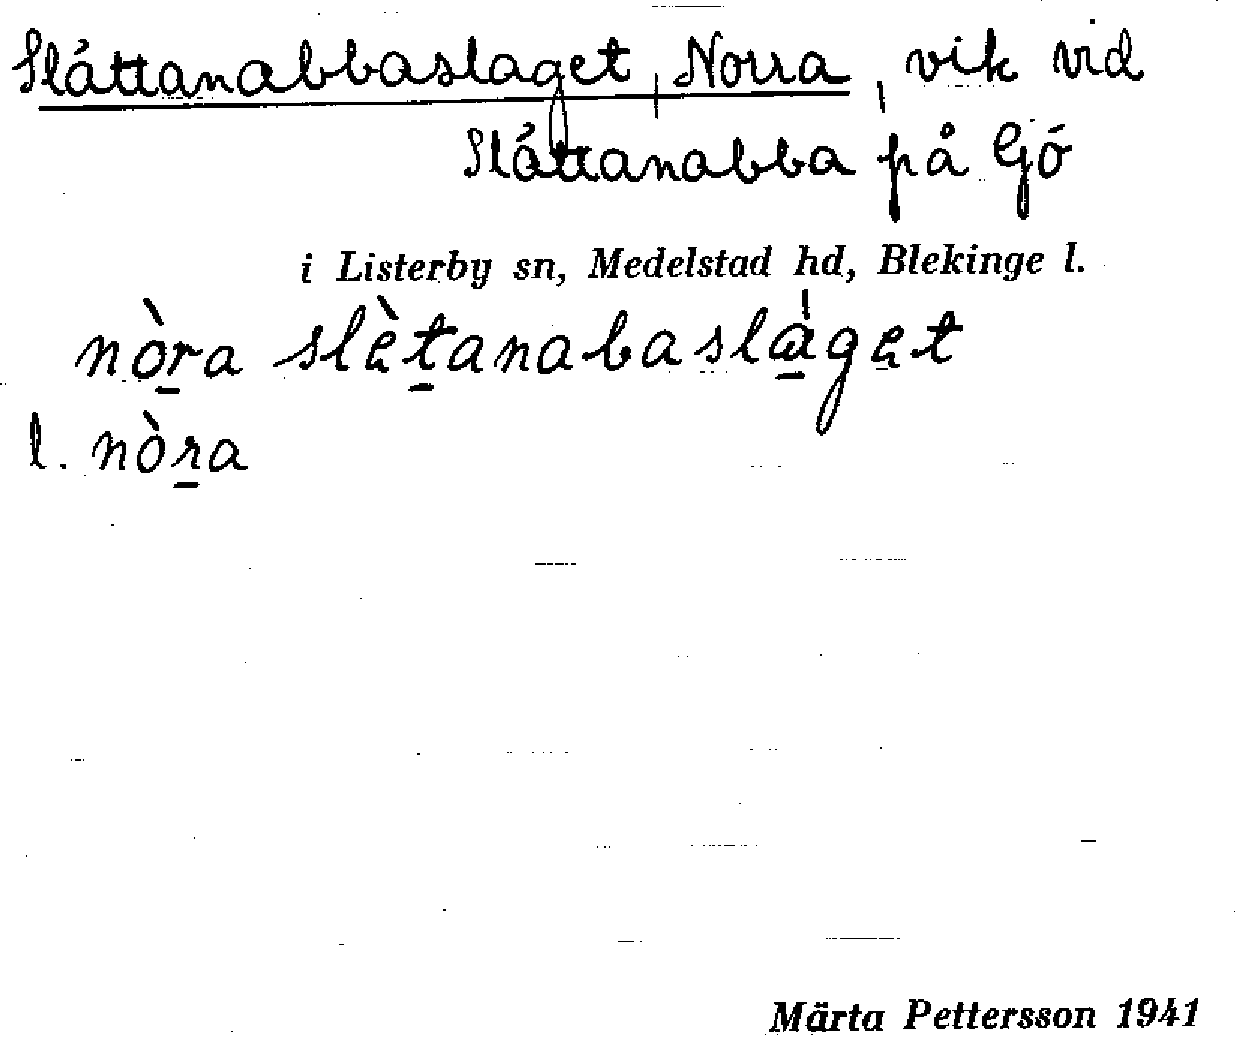 Slättanabbaslaget, Norra, vik vid
Slättanabba på Gö
i Listerby sn, Medelstad hd, Blekinge l.
nòṟa slèṯanabaslàget
l. nòṟa
Märta Pettersson 1941